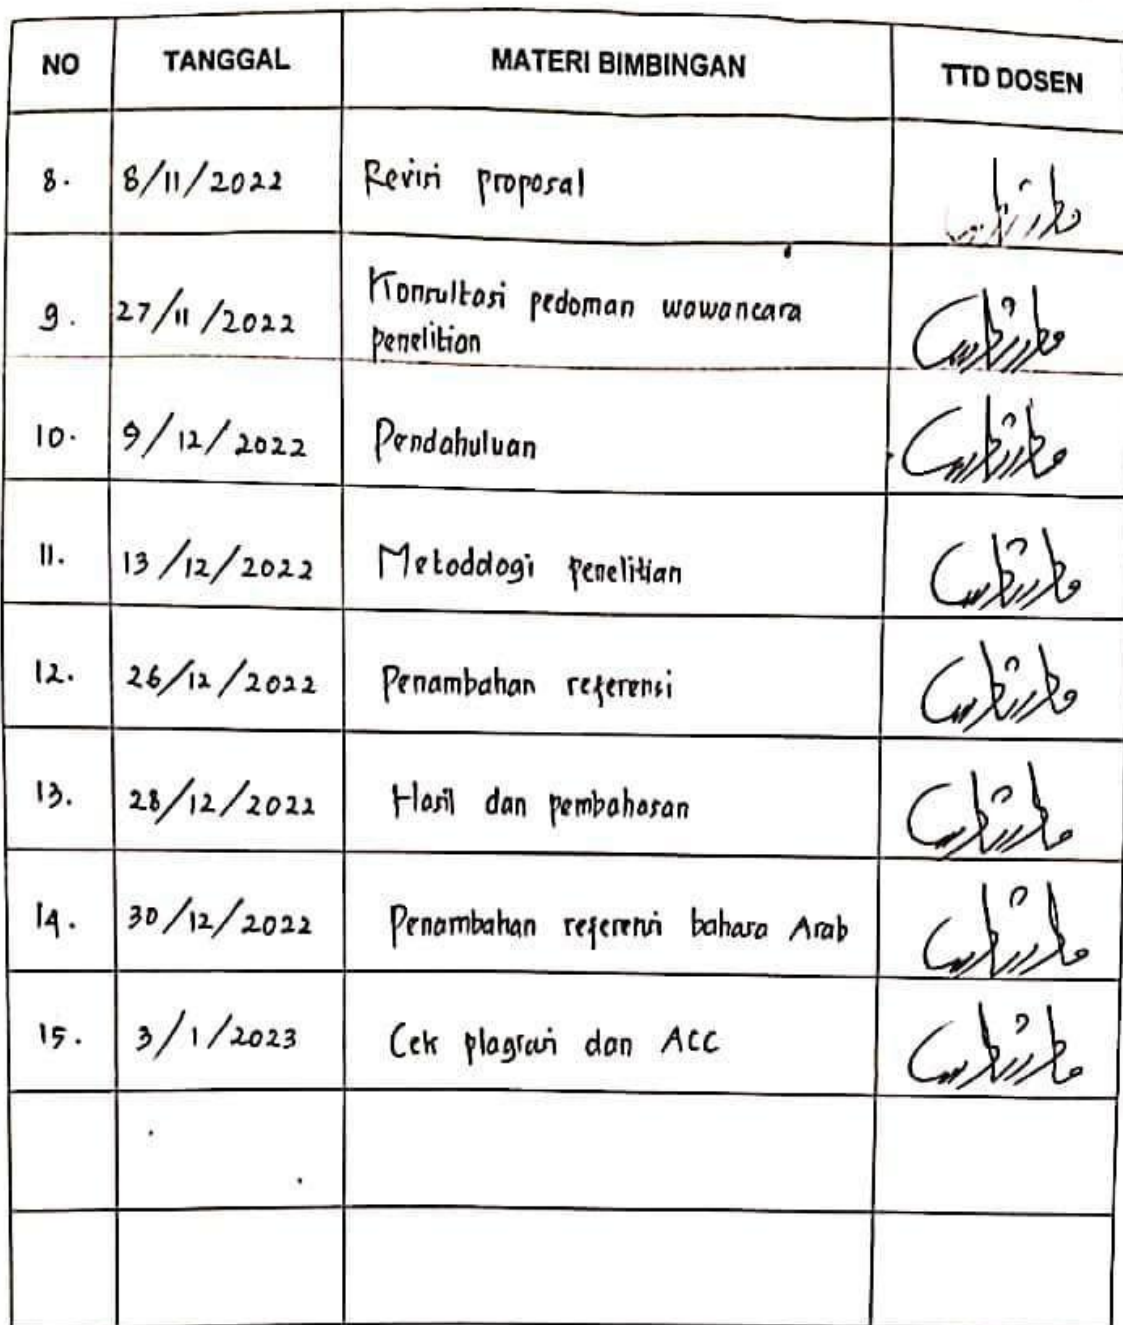 NO TANGGAL MATERI BIMBINGAN TTD DOSEN
8. 8/11/2022 Revisi proposal
9. 27/11/2022 Konsultasi pedoman wawancara
penelitian
10. 9/12/2022 Pendahuluan
11. 13/12/2022 Metodologi penelitian
12. 26/12/2022 Penambahan referensi
13. 28/12/2022 Hasil dan pembahasan
14. 30/12/2022 Penambahan referensi bahasa Arab
15. 3/1/2023 Cek plagrasi dan ACC